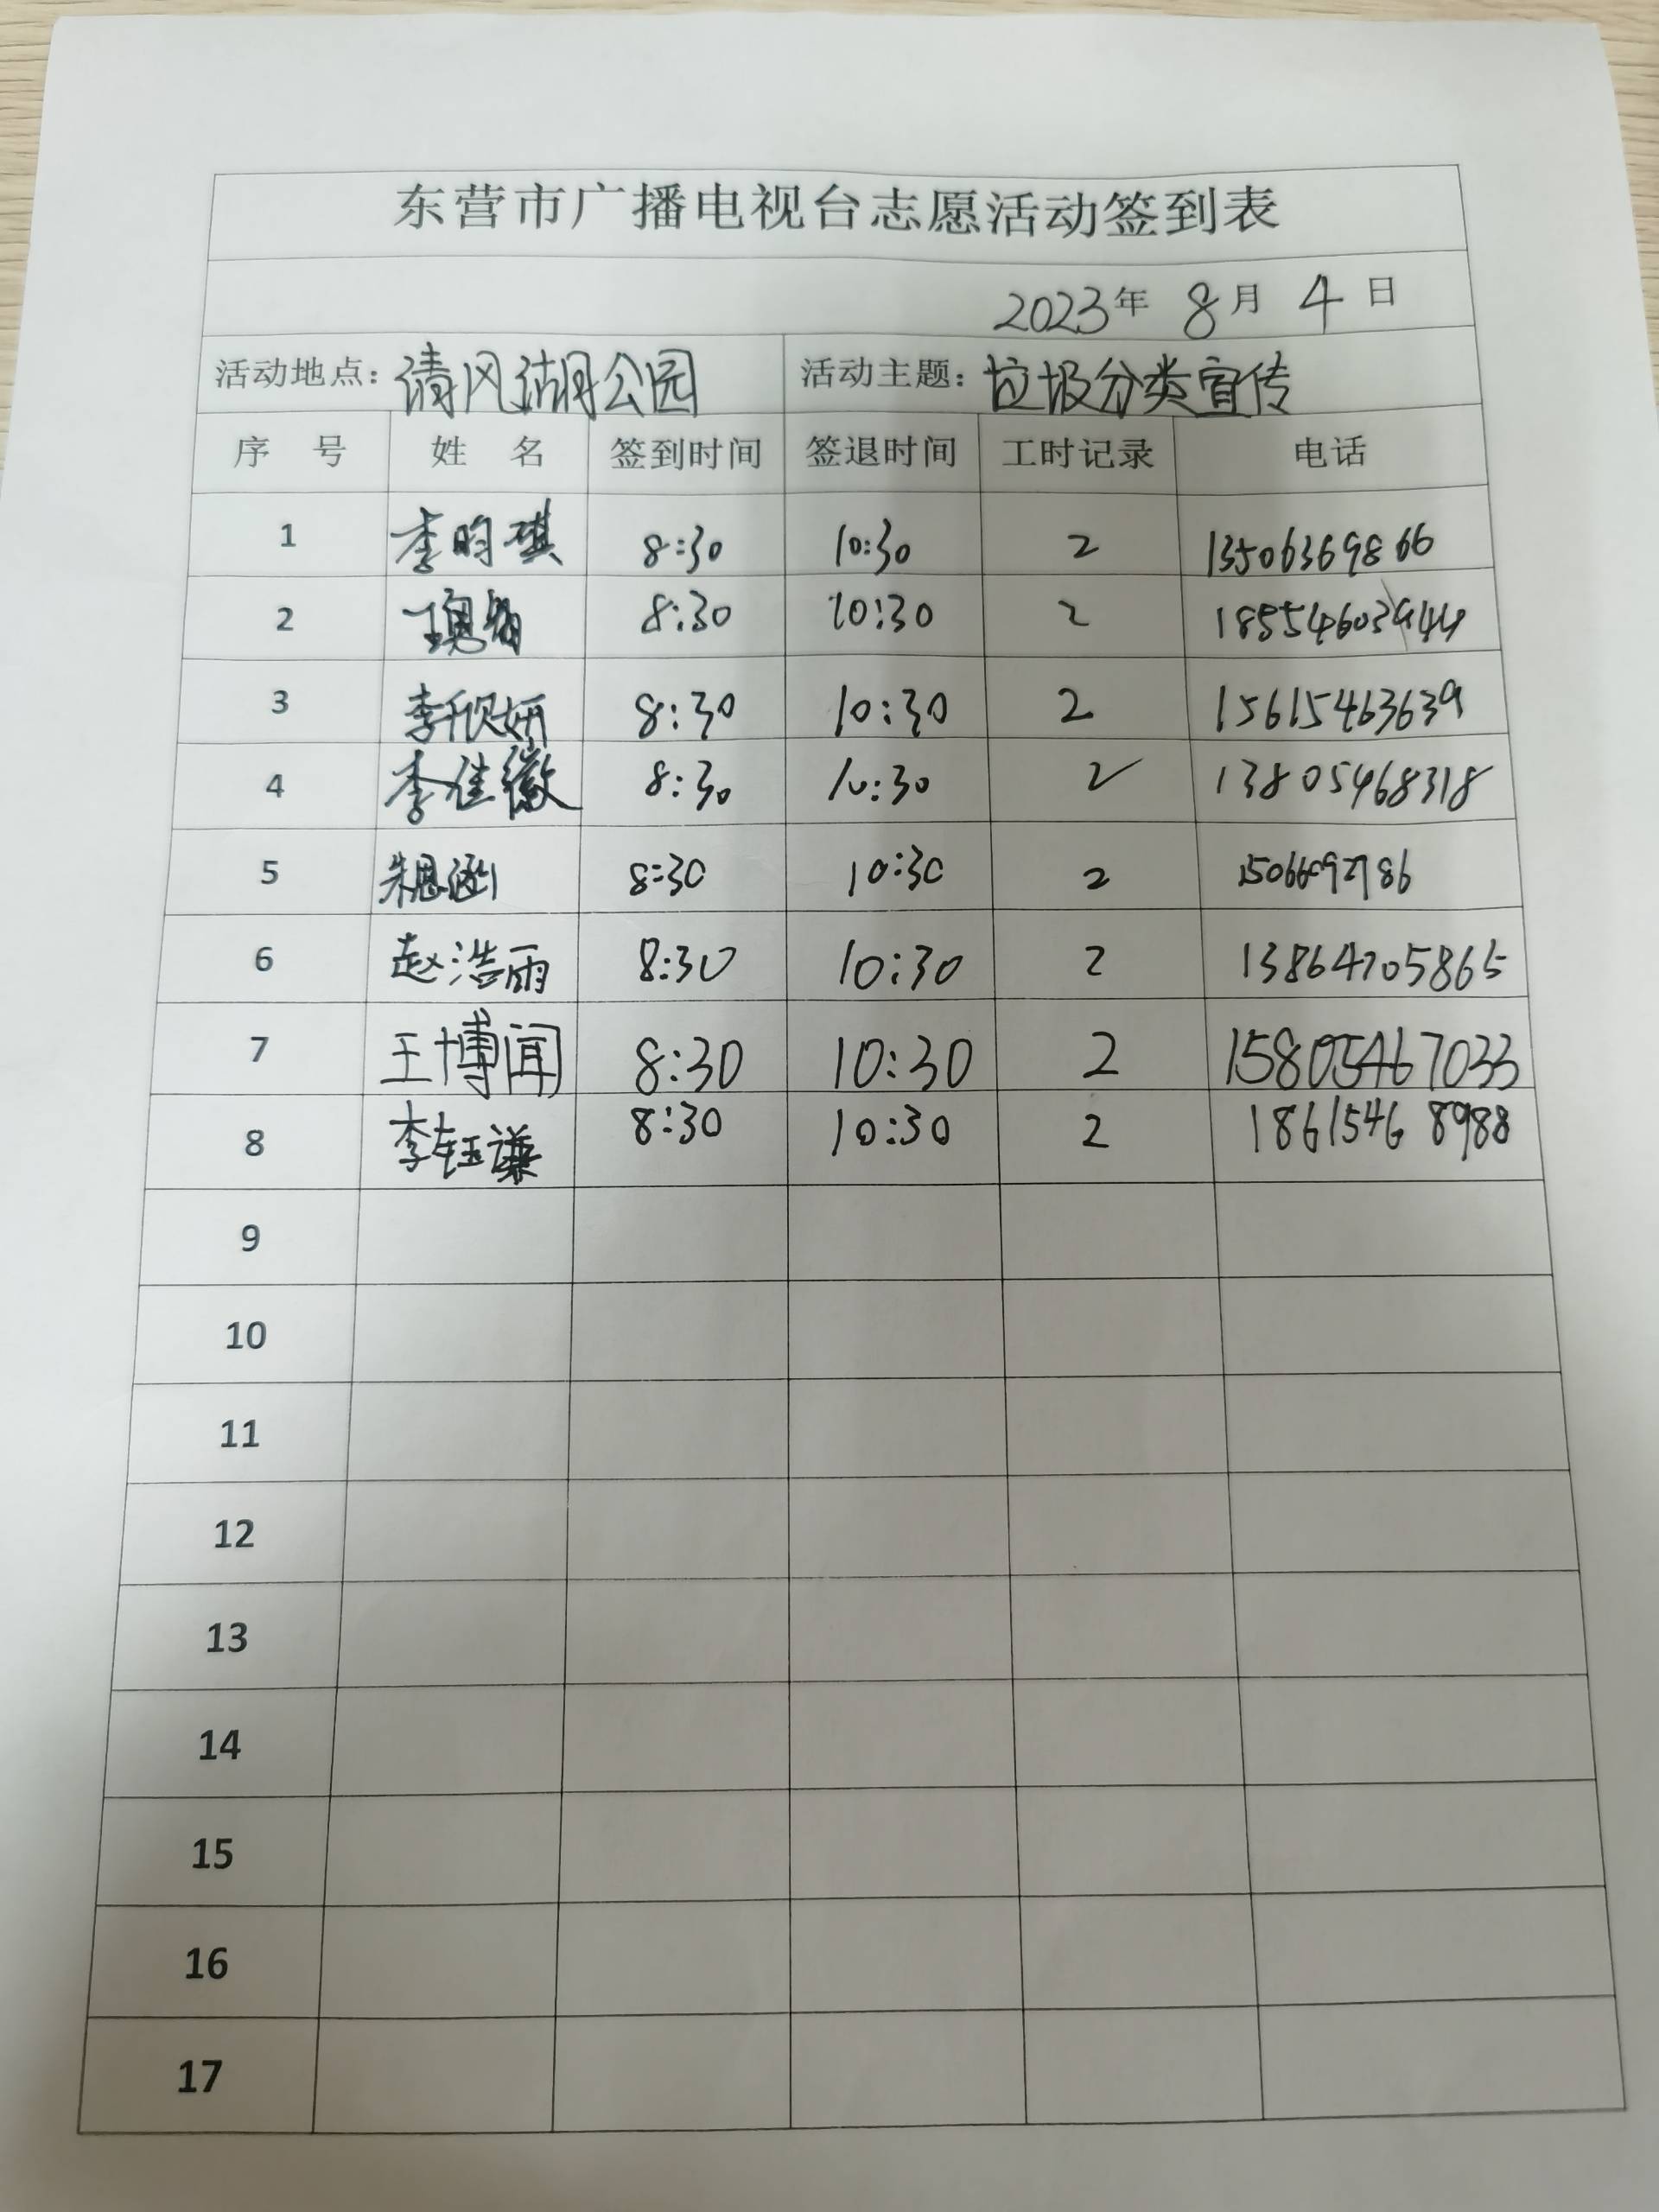 东营市广播电视台志愿活动签到表
2023年 8月 4日
活动地点：清风湖公园 活动主题：垃圾分类宣传
序 号 姓 名 签到时间 签退时间 工时记录 电话
1 李昀琪 8:30 10:30 2 13506369866
2 8:30 10:30 2
3 李欣妍 8:30 10:30 2 15615463639
4 李佳徽 8:30 10:30 2 13805468318
5 朱恩涵 8:30 10:30 2
6 赵浩雨 8:30 10:30 2 13864705865
7 王博闻 8:30 10:30 2 15805467033
8 李钰谦 8:30 10:30 2 18615468988
9
10
11
12
13
14
15
16
17